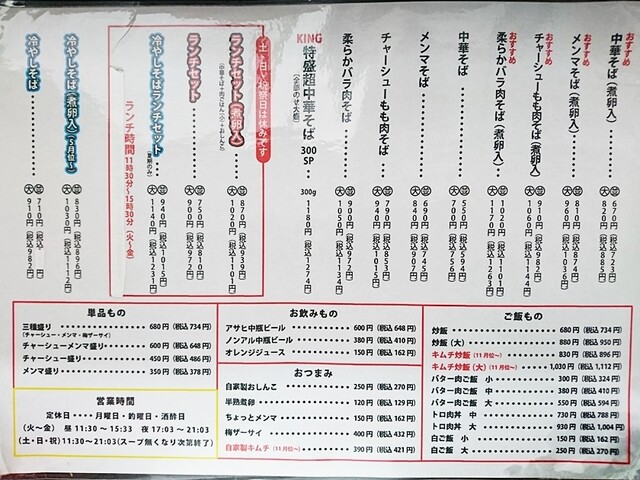 おすすめ
中華そば（煮卵入）
並 670円（税込 723円）
大 820円（税込 885円）
おすすめ
メンマそば（煮卵入）
並 810円（税込 874円）
大 960円（税込
おすすめ
チャーシューもも肉そば（煮卵入）
並 910円（税込 982円）
大 1060円（税込 1144円）
おすすめ
柔らかバラ肉そば（煮卵入）
並 1020円（税込 1101円）
大 1170円（税込 1263円）
中華そば
並 550円（税込 594円）
大 700円（税込 756円）
メンマそば
並 690円（税込 745円）
大 840円（税込 907円）
チャーシューもも肉そば
並 790円（税込 853円）
大 940円（税込 1015円）
柔らかバラ肉そば
並 900円（税込 972円）
大 1050円（税込 1134円）
KING
特盛超中華そば 300SP
（全部のせ大盛）
300g 1180円（税込 1274円）
土・日・祝祭日は休みです
ランチセット（煮卵入）
（中華そば＋肉ごはん（小）＋おしんこ）
並 870円（税込 939円）
大 1020円（税込 1101円）
ランチセット
並 750円（税込 810円）
大 900円（税込 972円）
冷やしそばランチセット
（夏期のみ）
並 940円（税込 1015円）
大 1140円（税込 1231円）
ランチ時間 11時30分～15時30分（火～金）
冷やしそば（煮卵入）（5月位～）
並 830円（税込 896円）
大 1030円（税込 1112円）
冷やしそば
並 710円（税込
大 910円（税込 982円）
単品もの
三種盛り 680円（税込 734円）
（チャーシュー・メンマ・梅ザーサイ）
チャーシューメンマ盛り 600円（税込 648円）
チャーシュー盛り 450円（税込 486円）
メンマ盛り 350円（税込 378円）
営業時間
定休日・・・・月曜日・第　曜日・酒酔日
（火～金） 昼 11:30～15:33 夜 17:03～21:03
（土・日・祝）11:30～21:03（スープ無くなり次第終了）
お飲みもの
アサヒ中瓶ビール 600円（税込 648円）
ノンアル中瓶ビール 380円（税込 410円）
オレンジジュース 150円（税込 162円）
おつまみ
自家製おしんこ 250円（税込 270円）
半熟煮卵 120円（税込 129円）
ちょっとメンマ 150円（税込 162円）
梅ザーサイ 400円（税込 432円）
自家製キムチ（11月位～） 390円（税込 421円）
ご飯もの
炒飯 680円（税込 734円）
炒飯（大） 880円（税込 950円）
キムチ炒飯（11月位～） 830円（税込 896円）
キムチ炒飯（大）（11月位～） 1,030円（税込 1,112円）
バター肉ご飯 小 300円（税込 324円）
バター肉ご飯 中 380円（税込 410円）
バター肉ご飯 大 550円（税込 594円）
トロ肉丼 中 730円（税込 788円）
トロ肉丼 大 930円（税込 1,004円）
白ご飯 小 150円（税込 162円）
白ご飯 大 250円（税込 270円）